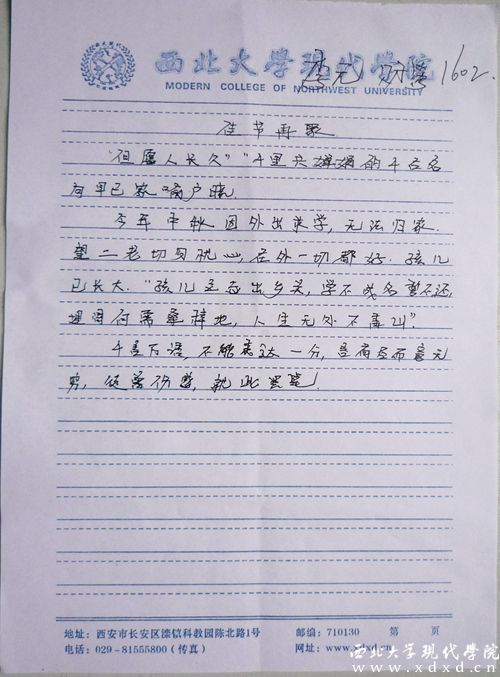 西北大学现代学院
MODERN COLLEGE OF NORTHWEST UNIVERSITY
1602.
佳节再聚
“但愿人长久”“千里共婵娟的千古名
句早已家喻户晓.
今年中秋因外出求学,无法归家.
望二老切勿忧心,在外一切都好.孩儿
已长大.“孩儿立志出乡关,学不成名誓不还,
埋骨何需桑梓地,人生无处不青山”.
千言万语,不能表达一分,言有尽而意无
穷,
地址:西安市长安区滦镇科教园陈北路1号
邮编:710130
第 页
电话:029-81555800(传真)
网址:www.xdxd.cn
西北大学现代学院
www.xdxd.cn